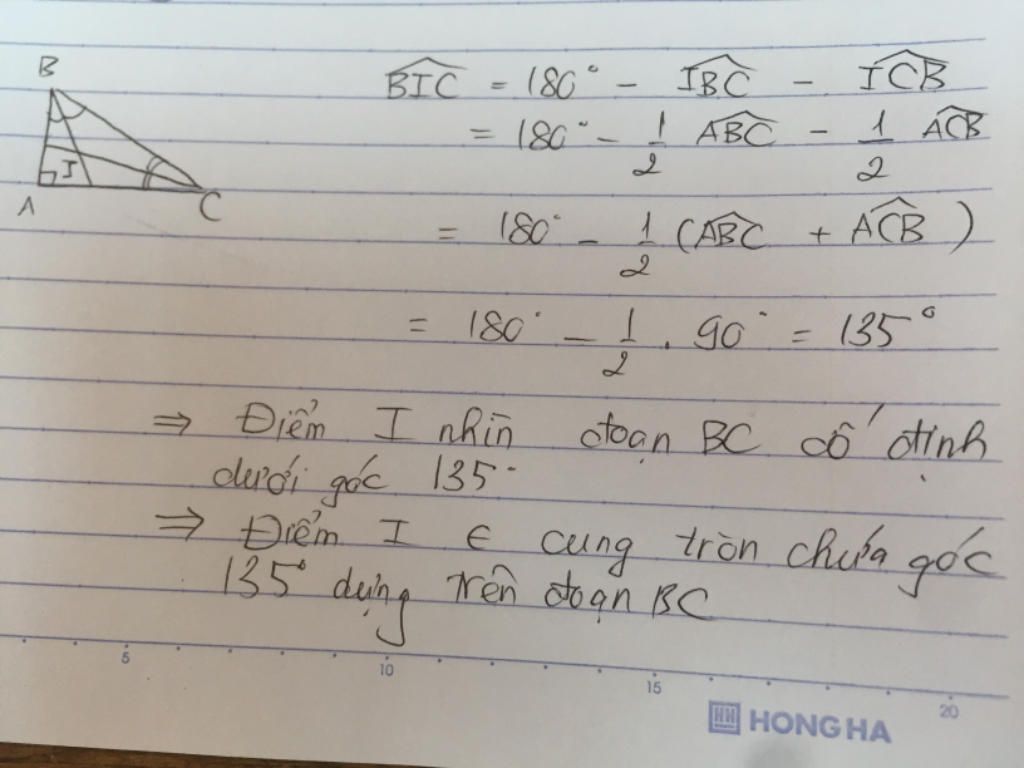 B
I
A
C
BIC = 180° - IBC - ICB
= 180° - 1/2 ABC - 1/2 ACB
= 180° - 1/2 (ABC + ACB)
= 180° - 1/2 . 90° = 135°
⇒ Điểm I nhìn đoạn BC cố định
dưới góc 135°
⇒ Điểm I ∈ cung tròn chứa góc
135° dựng trên đoạn BC
5 10 15 20
HONG HA